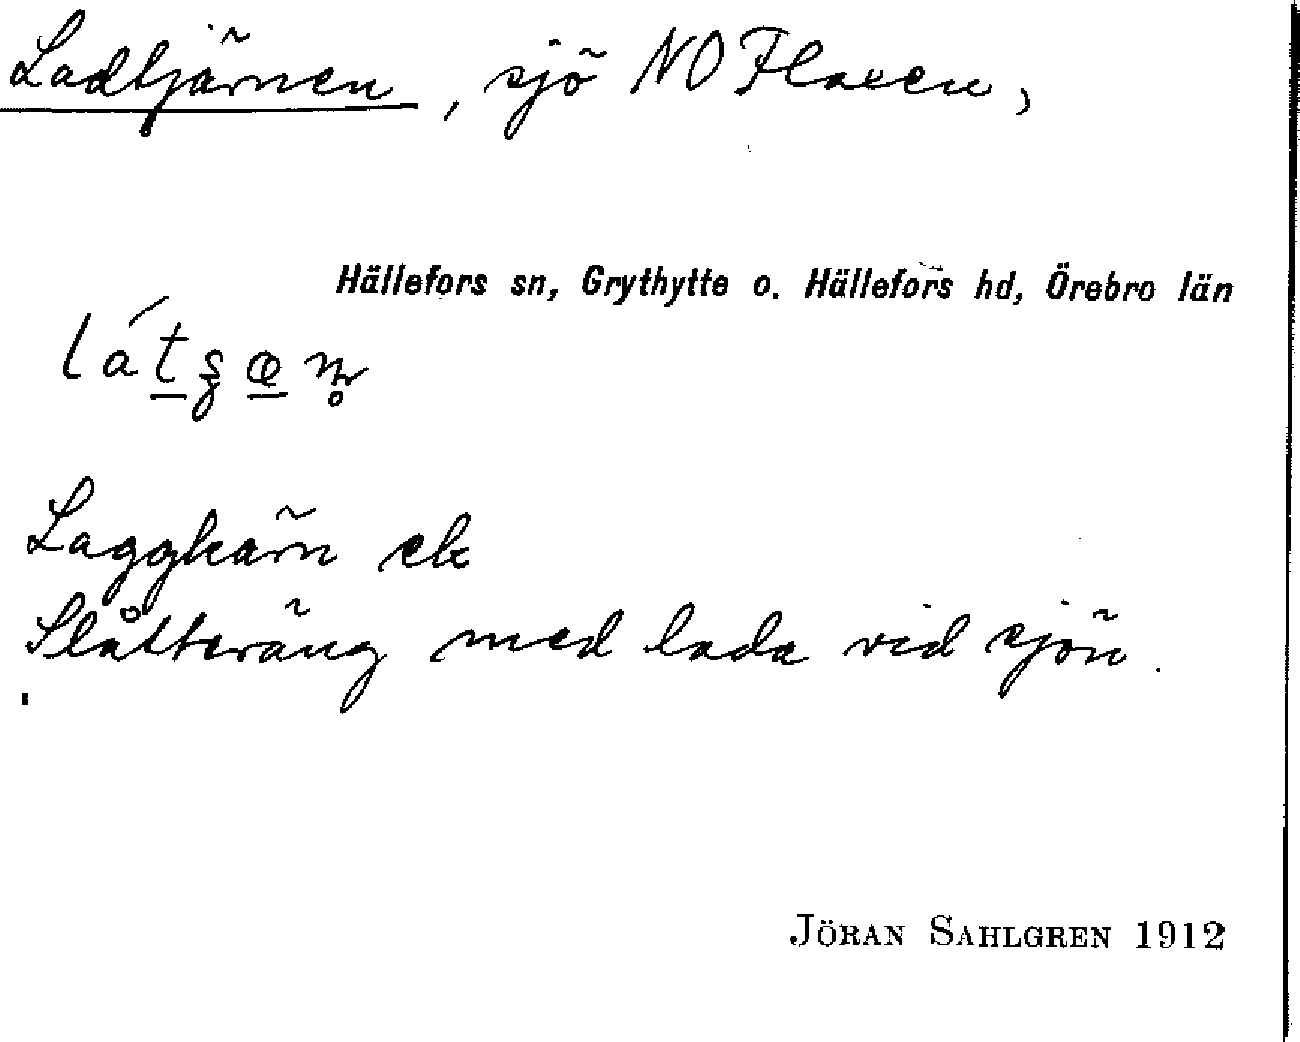 Ladtjärnen, sjö NO Flaxen,
Hällefors sn, Grythytte o. Hällefors hd, Örebro län
Laggkärn ek
Slåtteräng med lada vid sjön.
JÖRAN SAHLGREN 1912